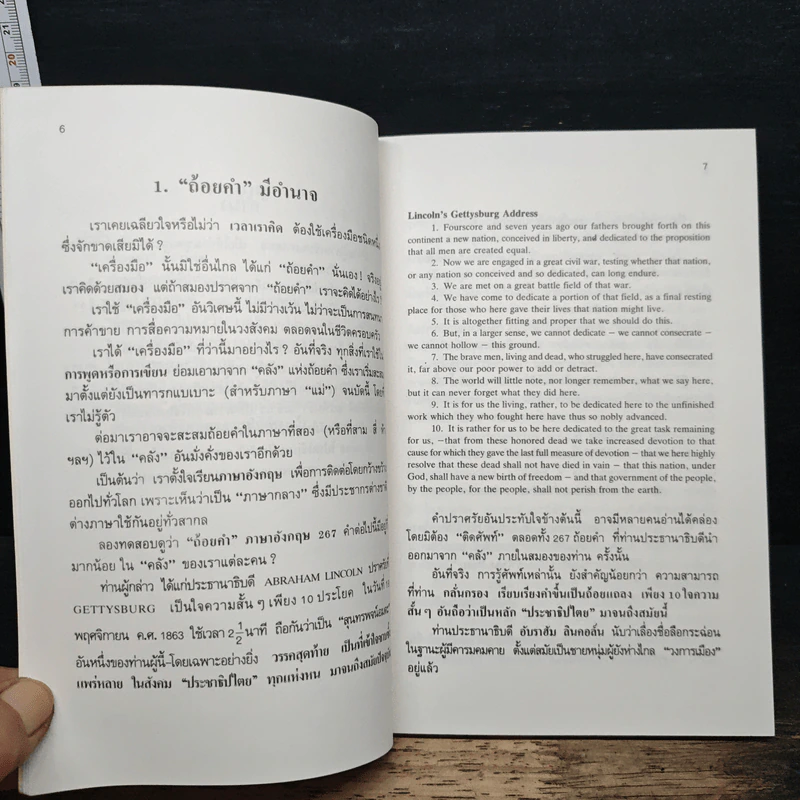 21
20
19
6
1. “ถ้อยคำ” มีอำนาจ
เราเคยเฉลียวใจหรือไม่ว่า เวลาเราคิด ต้องใช้เครื่องมือชนิดหนึ่ง
ซึ่งจักขาดเสียมิได้ ?
“เครื่องมือ” นั้นมิใช่อื่นไกล ได้แก่ “ถ้อยคำ” นั่นเอง! จริงอยู่
เราคิดด้วยสมอง แต่ถ้าสมองปราศจาก “ถ้อยคำ” เราจะคิดได้อย่างไร!
เราใช้ “เครื่องมือ” อันวิเศษนี้ ไม่มีว่างเว้น ไม่ว่าจะเป็นการสนทนา
การค้าขาย การสื่อความหมายในวงสังคม ตลอดจนในชีวิตครอบครัว
เราได้ “เครื่องมือ” ที่ว่านี้มาอย่างไร ? อันที่จริง ทุกสิ่งที่เราใช้ใน
การพูดหรือการเขียน ย่อมเอามาจาก “คลัง” แห่งถ้อยคำ ซึ่งเราเริ่มสะสม
มาตั้งแต่ยังเป็นทารกแบเบาะ (สำหรับภาษา “แม่”) จนบัดนี้ โดยที่
เราไม่รู้ตัว
ต่อมาเราอาจจะสะสมถ้อยคำในภาษาที่สอง (หรือที่สาม สี่ ห้า
ฯลฯ) ไว้ใน “คลัง” อันมั่งคั่งของเราอีกด้วย
เป็นต้นว่า เราตั้งใจเรียนภาษาอังกฤษ เพื่อการติดต่อโดยกว้างขวาง
ออกไปทั่วโลก เพราะเห็นว่าเป็น “ภาษากลาง” ซึ่งมีประชากรต่างชาติ
ต่างภาษาใช้กันอยู่ทั่วสากล
ลองทดสอบดูว่า “ถ้อยคำ” ภาษาอังกฤษ 267 คำต่อไปนี้มีอยู่
มากน้อย ใน “คลัง” ของเราแต่ละคน ?
ท่านผู้กล่าว ได้แก่ประธานาธิบดี ABRAHAM LINCOLN ปราศรัยที่
GETTYSBURG เป็นใจความสั้น ๆ เพียง 10 ประโยค ในวันที่ 19
พฤศจิกายน ค.ศ. 1863 ใช้เวลา 2½ นาที ถือกันว่าเป็น “สุนทรพจน์อมตะ”
อันหนึ่งของท่านผู้นี้–โดยเฉพาะอย่างยิ่ง วรรคสุดท้าย เป็นที่เข้าใจซาบซึ้ง
แพร่หลาย ในสังคม “ประชาธิปไตย” ทุกแห่งหน มาจนถึงสมัยปัจจุบัน
7
Lincoln's Gettysburg Address
1. Fourscore and seven years ago our fathers brought forth on this
continent a new nation, conceived in liberty, and dedicated to the proposition
that all men are created equal.
2. Now we are engaged in a great civil war, testing whether that nation,
or any nation so conceived and so dedicated, can long endure.
3. We are met on a great battle field of that war.
4. We have come to dedicate a portion of that field, as a final resting
place for those who here gave their lives that nation might live.
5. It is altogether fitting and proper that we should do this.
6. But, in a larger sense, we cannot dedicate — we cannot consecrate —
we cannot hollow — this ground.
7. The brave men, living and dead, who struggled here, have consecrated
it, far above our poor power to add or detract.
8. The world will little note, nor longer remember, what we say here,
but it can never forget what they did here.
9. It is for us the living, rather, to be dedicated here to the unfinished
work which they who fought here have thus so nobly advanced.
10. It is rather for us to be here dedicated to the great task remaining
for us, —that from these honored dead we take increased devotion to that
cause for which they gave the last full measure of devotion — that we here highly
resolve that these dead shall not have died in vain — that this nation, under
God, shall have a new birth of freedom — and that government of the people,
by the people, for the people, shall not perish from the earth.
คำปราศรัยอันประทับใจข้างต้นนี้ อาจมีหลายคนอ่านได้คล่อง
โดยมิต้อง “ติดศัพท์” ตลอดทั้ง 267 ถ้อยคำ ที่ท่านประธานาธิบดีนำ
ออกมาจาก “คลัง” ภายในสมองของท่าน ครั้งนั้น
อันที่จริง การรู้ศัพท์เหล่านั้น ยังสำคัญน้อยกว่า ความสามารถ
ที่ท่าน กลั่นกรอง เรียบเรียงคำขึ้นเป็นถ้อยแถลง เพียง 10 ใจความ
สั้น ๆ อันถือว่าเป็นหลัก “ประชาธิปไตย” มาจนถึงสมัยนี้
ท่านประธานาธิบดี อับราฮัม ลินคอล์น นับว่าเลื่องชื่อลือกระฉ่อน
ในฐานะผู้มีคารมคมคาย ตั้งแต่สมัยเป็นชายหนุ่มผู้ยังห่างไกล “วงการเมือง”
อยู่แล้ว